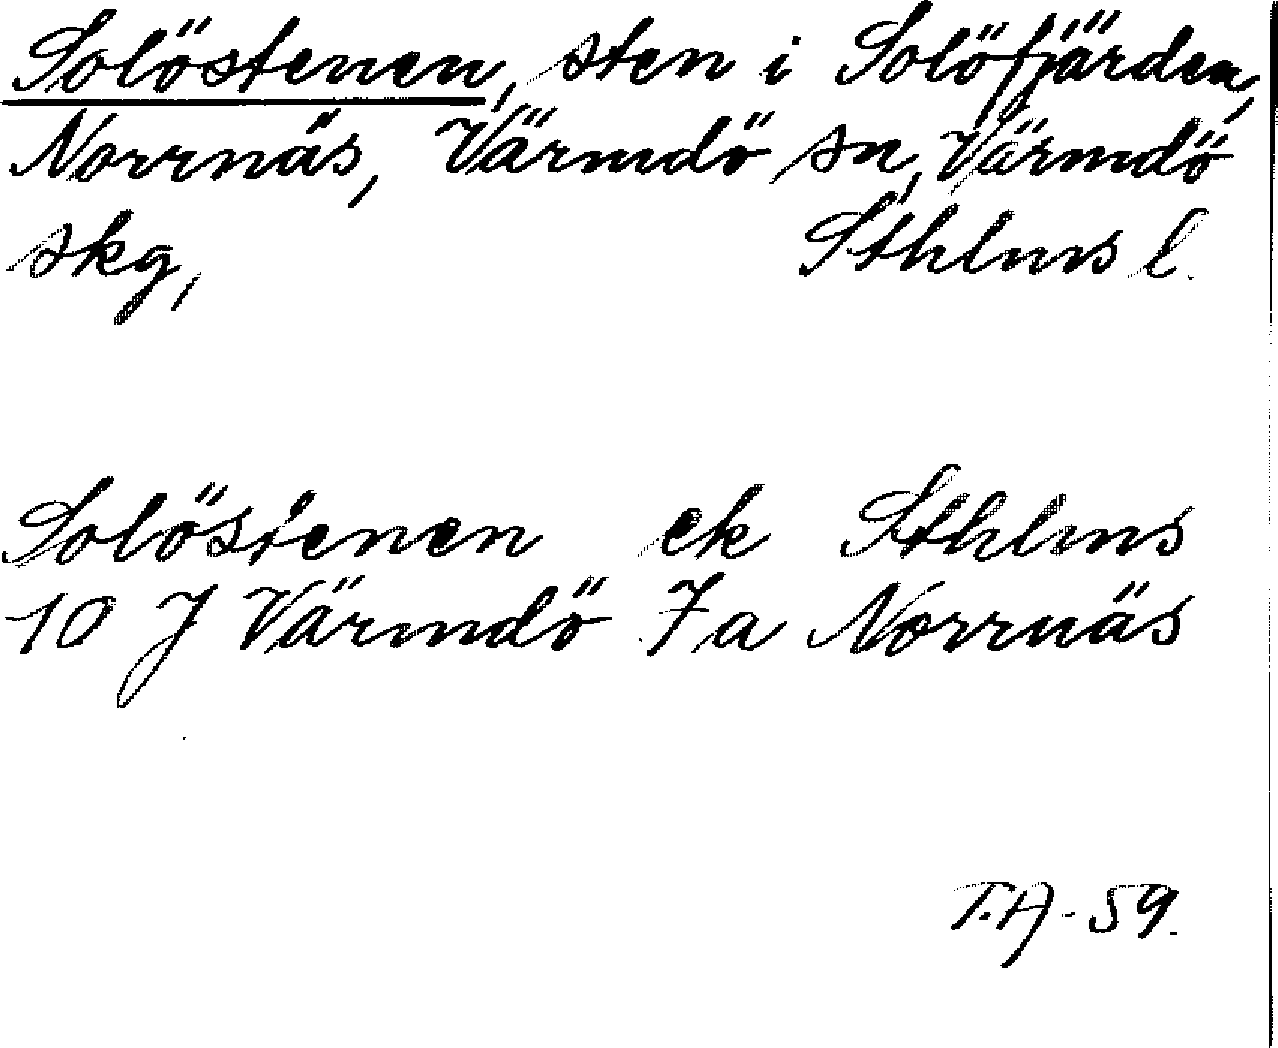 Solöstenen, sten i Solöfjärden,
Norrnäs, Värmdö sn, Värmdö
skg, Sthlms l.
Solöstenen ek Sthlms
10 J Värmdö 7a Norrnäs
T.A-59.